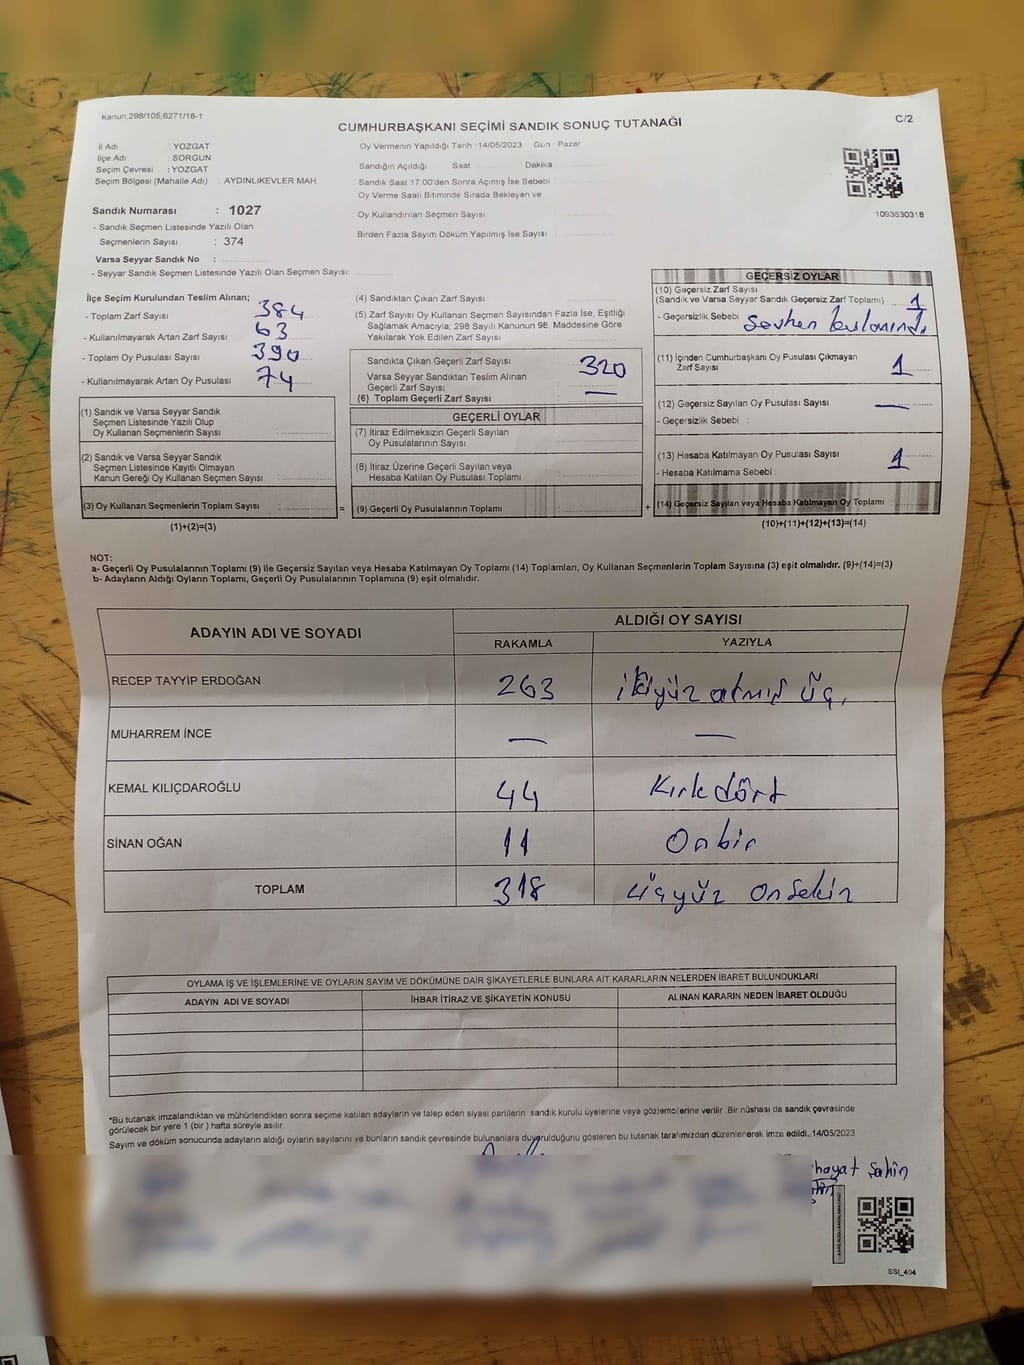 Kanun,298/105,6271/18-1
CUMHURBAŞKANI SEÇİMİ SANDIK SONUÇ TUTANAĞI
C/2
İl Adı : YOZGAT
İlçe Adı : SORGUN
Seçim Çevresi : YOZGAT
Seçim Bölgesi (Mahalle Adı) : AYDINLIKEVLER MAH.
Sandık Numarası : 1027
- Sandık Seçmen Listesinde Yazılı Olan
Seçmenlerin Sayısı : 374
Varsa Seyyar Sandık No :
- Seyyar Sandık Seçmen Listesinde Yazılı Olan Seçmen Sayısı:
Oy Vermenin Yapıldığı Tarih : 14/05/2023 Gün : Pazar
Sandığın Açıldığı Saat Dakika
Sandık Saat 17:00'den Sonra Açılmış İse Sebebi
Oy Verme Saati Bitiminde Sırada Bekleyen ve
Oy Kullandırılan Seçmen Sayısı
Birden Fazla Sayım Döküm Yapılmış İse Sayısı :
1093530318
İlçe Seçim Kurulundan Teslim Alınan;
- Toplam Zarf Sayısı 384
- Kullanılmayarak Artan Zarf Sayısı 63
- Toplam Oy Pusulası Sayısı 390
- Kullanılmayarak Artan Oy Pusulası 74
(1) Sandık ve Varsa Seyyar Sandık
Seçmen Listesinde Yazılı Olup
Oy Kullanan Seçmenlerin Sayısı :
(2) Sandık ve Varsa Seyyar Sandık
Seçmen Listesinde Kayıtlı Olmayan
Kanun Gereği Oy Kullanan Seçmen Sayısı :
(3) Oy Kullanan Seçmenlerin Toplam Sayısı :
(1)+(2)=(3)
(4) Sandıktan Çıkan Zarf Sayısı
(5) Zarf Sayısı Oy Kullanan Seçmen Sayısından Fazla İse, Eşitliği
Sağlamak Amacıyla; 298 Sayılı Kanunun 98. Maddesine Göre
Yakılarak Yok Edilen Zarf Sayısı
Sandıkta Çıkan Geçerli Zarf Sayısı 320
Varsa Seyyar Sandıktan Teslim Alınan
Geçerli Zarf Sayısı —
(6) Toplam Geçerli Zarf Sayısı
GEÇERLİ OYLAR
(7) İtiraz Edilmeksizin Geçerli Sayılan
Oy Pusulalarının Sayısı
(8) İtiraz Üzerine Geçerli Sayılan veya
Hesaba Katılan Oy Pusulası Toplamı
= (9) Geçerli Oy Pusulalarının Toplamı :
GEÇERSİZ OYLAR
(10) Geçersiz Zarf Sayısı
(Sandık ve Varsa Seyyar Sandık Geçersiz Zarf Toplamı) 1
- Geçersizlik Sebebi
(11) İçinden Cumhurbaşkanı Oy Pusulası Çıkmayan
Zarf Sayısı 1
(12) Geçersiz Sayılan Oy Pusulası Sayısı —
- Geçersizlik Sebebi :
(13) Hesaba Katılmayan Oy Pusulası Sayısı 1
- Hesaba Katılmama Sebebi :
+ (14) Geçersiz Sayılan veya Hesaba Katılmayan Oy Toplamı
(10)+(11)+(12)+(13)=(14)
NOT:
a- Geçerli Oy Pusulalarının Toplamı (9) ile Geçersiz Sayılan veya Hesaba Katılmayan Oy Toplamı (14) Toplamları, Oy Kullanan Seçmenlerin Toplam Sayısına (3) eşit olmalıdır. (9)+(14)=(3)
b- Adayların Aldığı Oyların Toplamı, Geçerli Oy Pusulalarının Toplamına (9) eşit olmalıdır.
ADAYIN ADI VE SOYADI
ALDIĞI OY SAYISI
RAKAMLA YAZIYLA
RECEP TAYYİP ERDOĞAN 263 ikiyüz atmış üç
MUHARREM İNCE — —
KEMAL KILIÇDAROĞLU 44 Kırk dört
SİNAN OĞAN 11 Onbir
TOPLAM 318 üçyüz Onsekiz
OYLAMA İŞ VE İŞLEMLERİNE VE OYLARIN SAYIM VE DÖKÜMÜNE DAİR ŞİKAYETLERLE BUNLARA AİT KARARLARIN NELERDEN İBARET BULUNDUKLARI
ADAYIN ADI VE SOYADI İHBAR İTİRAZ VE ŞİKAYETİN KONUSU ALINAN KARARIN NEDEN İBARET OLDUĞU
*Bu tutanak imzalandıktan ve mühürlendikten sonra seçime katılan adayların ve talep eden siyasi partilerin sandık kurulu üyelerine veya gözlemcilerine verilir. Bir nüshası da sandık çevresinde
görülecek bir yere 1 (bir) hafta süreyle asılır.
Sayım ve döküm sonucunda adayların aldığı oyların sayılarını ve bunların sandık çevresinde bulunanlara duyurulduğunu gösteren bu tutanak tarafımızdan düzenlenerek imza edildi. 14/05/2023
hayat Şahin
SSI_404